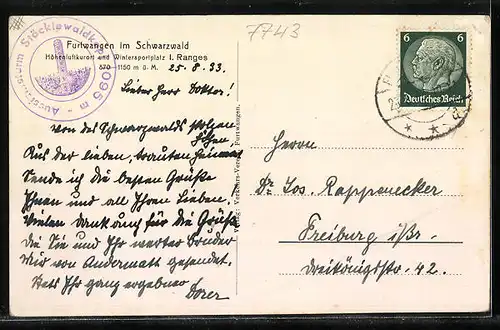 7743
Aussichtsturm Stöcklewaldkopf 1095 m -
Furtwangen im Schwarzwald
Höhenluftkurort und Wintersportplatz I. Ranges
870 - 1150 m ü. M.
25.8.33.
Lieber Herr Doktor!
Von des Schwarzwalds stolzen
Höhen
Aus der lieben, trauten Heimat
Sende ich die besten Grüße
Ihnen und all Ihren Lieben.
Vielen Dank auch für die Grüße
die Sie und Ihr werter Bruder
mir von Andermatt gesendet.
Stets Ihr ganz ergebener
Dorer
Furtwangen.
6
6
Deutsches Reich
Herrn
Dr. Jos. Rappenecker
Freiburg i/Br.
Dreikönigstr. 42.